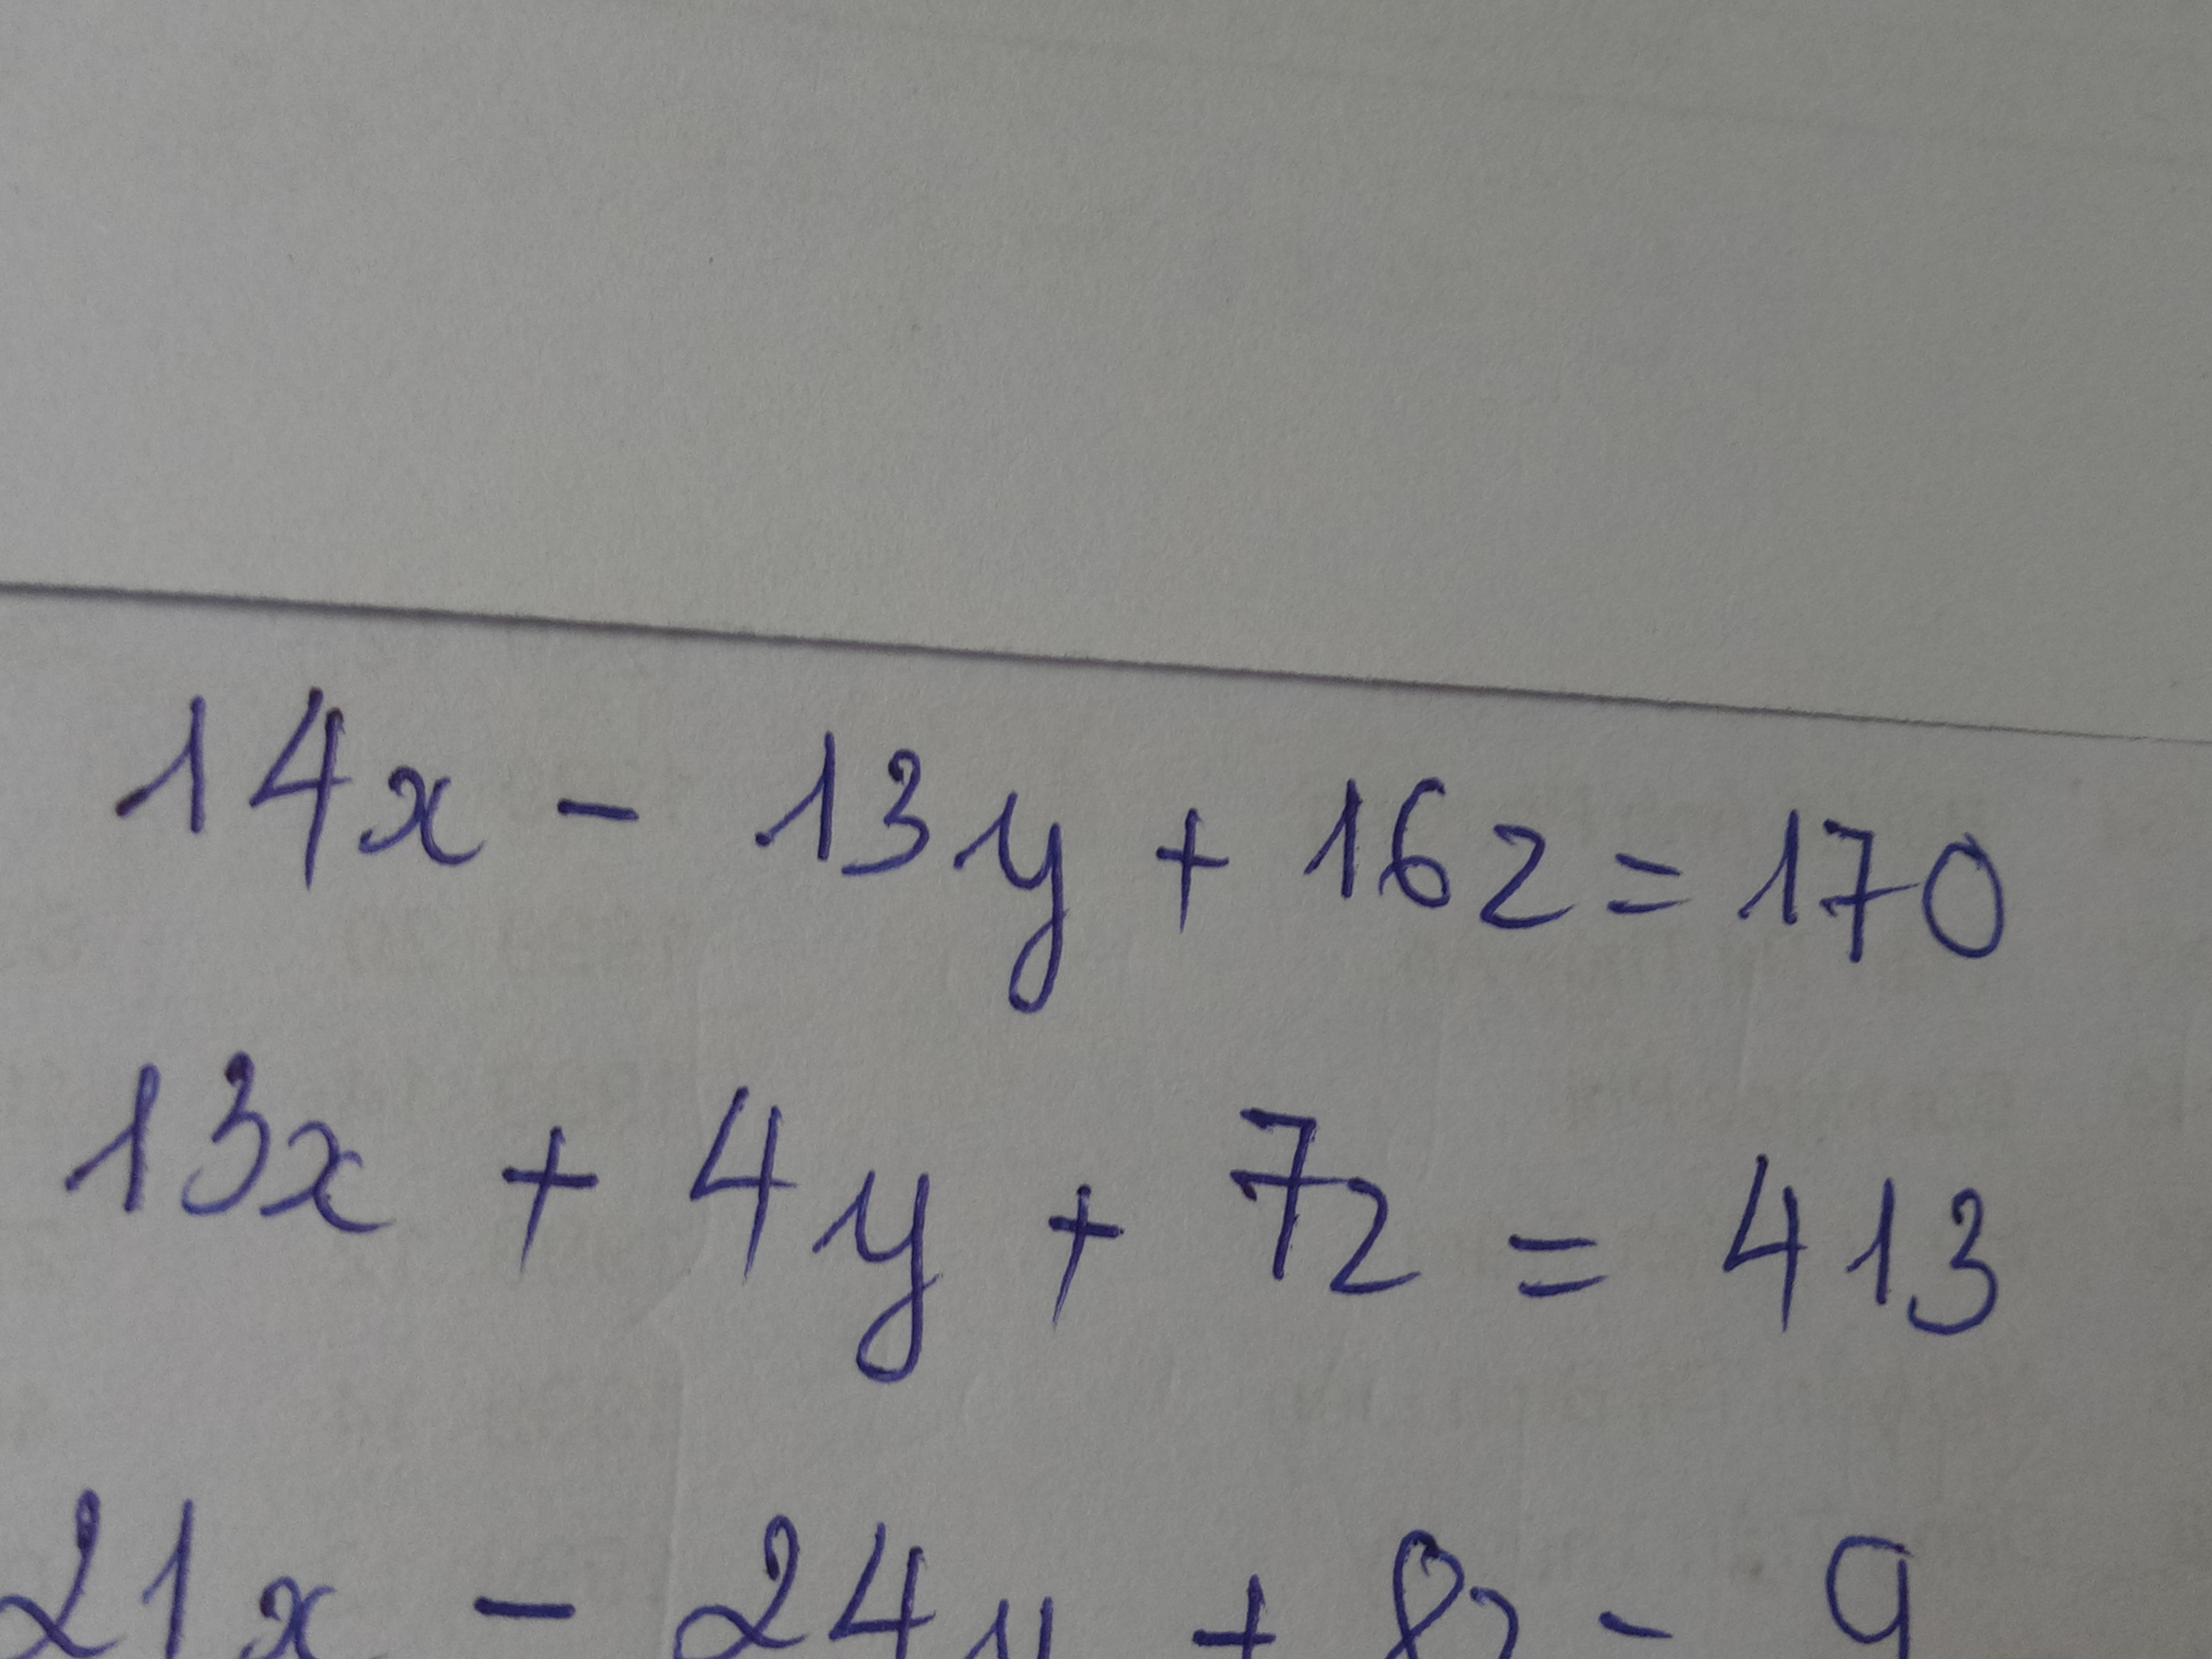 14x - 13y + 16z = 170
13x + 4y + 7z = 413
21x - 24y + 8z